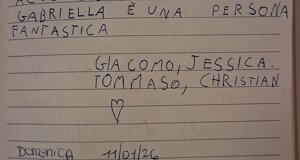 GABRIELLA È UNA PERSONA
FANTASTICA
GIACOMO, JESSICA.
TOMMASO, CHRISTIAN
♡
DOMENICA 11/01/26